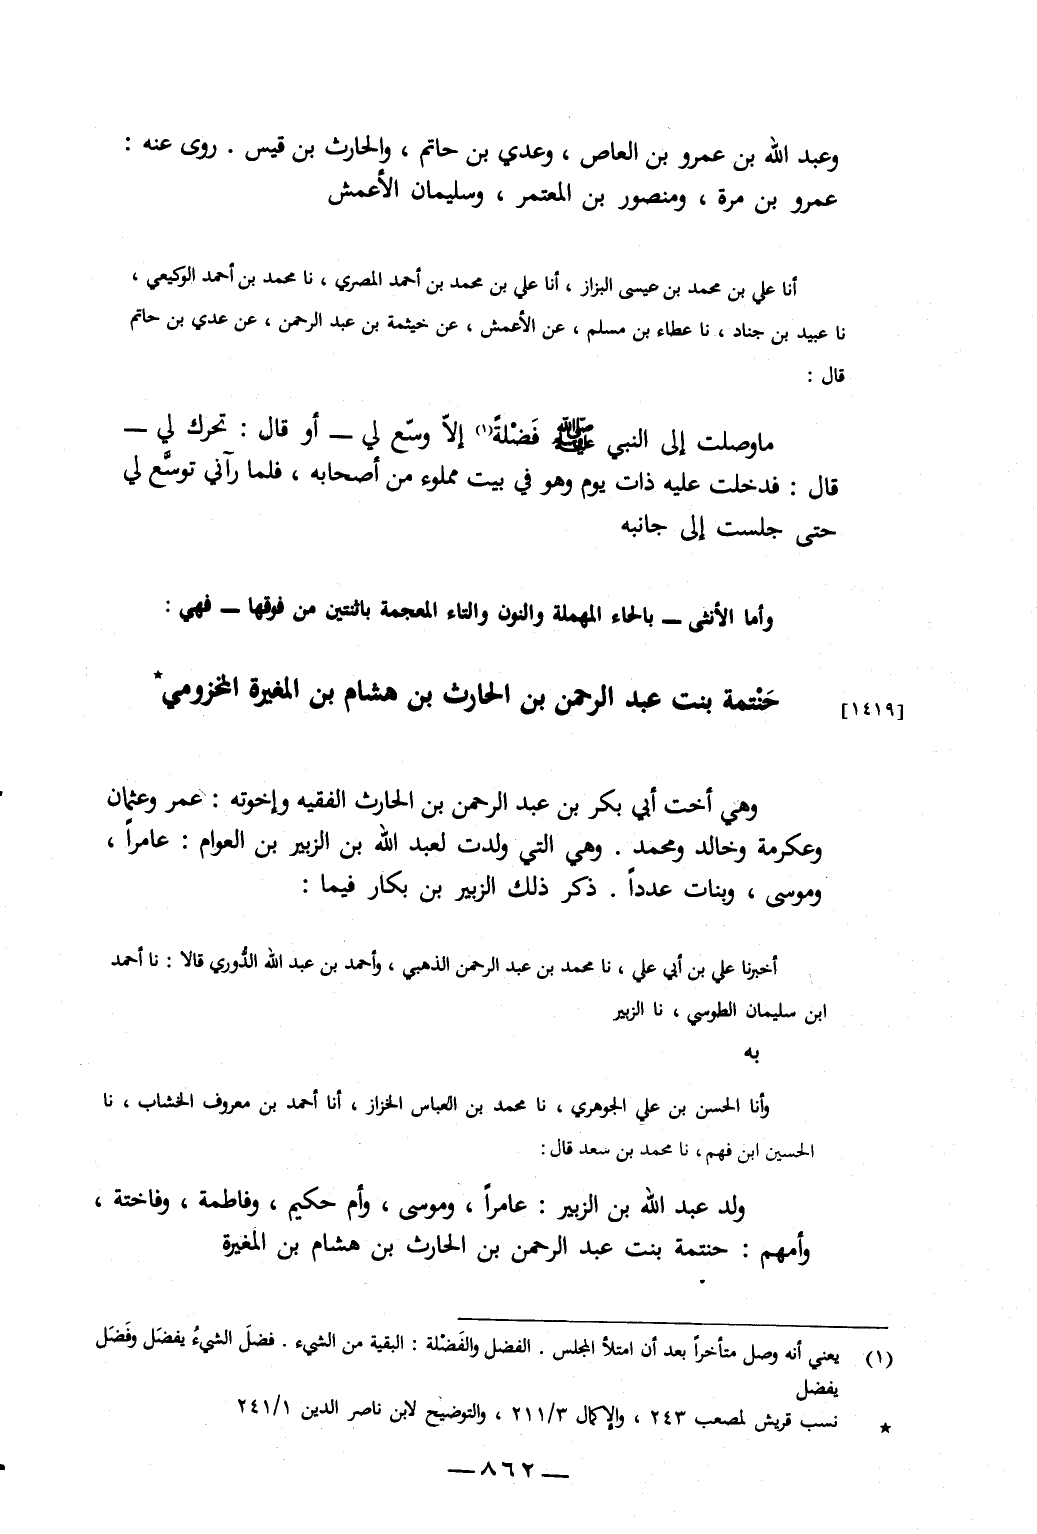 وعبد الله بن عمرو بن العاص ، وعدي بن حاتم ، والحارث بن قيس . روى عنه :
عمرو بن مرة ، ومنصور بن المعتمر ، وسليمان الأعمش
أنا علي بن محمد بن عيسى البزاز ، أنا علي بن محمد بن أحمد المصري ، نا محمد بن أحمد الوكيعي ،
نا عبيد بن جناد ، نا عطاء بن مسلم ، عن الأعمش ، عن خيثمة بن عبد الرحمن ، عن عدي بن حاتم
قال :
ماوصلت إلى النبي ﷺ فَضْلةً(١) إلاّ وسّع لي ــ أو قال : تحرك لي ــ
قال : فدخلت عليه ذات يوم وهو في بيت مملوء من أصحابه ، فلما رآني توسَّع لي
حتى جلست إلى جانبه
وأما الأنثى ــ بالحاء المهملة والنون والتاء المعجمة باثنتين من فوقها ــ فهي :
[١٤١٩] حَنْتمة بنت عبد الرحمن بن الحارث بن هشام بن المغيرة المخزومي*
وهي أخت أبي بكر بن عبد الرحمن بن الحارث الفقيه وإخوته : عمر وعثمان
وعكرمة وخالد ومحمد . وهي التي ولدت لعبد الله بن الزبير بن العوام : عامراً ،
وموسى ، وبنات عدداً . ذكر ذلك الزبير بن بكار فيما :
أخبرنا علي بن أبي علي ، نا محمد بن عبد الرحمن الذهبي ، وأحمد بن عبد الله الدُّوري قالا : نا أحمد
ابن سليمان الطوسي ، نا الزبير
به
وأنا الحسن بن علي الجوهري ، نا محمد بن العباس الخزاز ، أنا أحمد بن معروف الخشاب ، نا
الحسين ابن فهم ، نا محمد بن سعد قال :
ولد عبد الله بن الزبير : عامراً ، وموسى ، وأم حكيم ، وفاطمة ، وفاختة ،
وأمهم : حنتمة بنت عبد الرحمن بن الحارث بن هشام بن المغيرة
(١) يعني أنه وصل متأخراً بعد أن امتلأ المجلس . الفضل والفَضْلة : البقية من الشيء . فضلَ الشيءُ يفضَل وفَضَل
يفضل
* نسب قريش لمصعب ٢٤٣ ، والإكمال ٢١١/٣ ، والتوضيح لابن ناصر الدين ٢٤١/١
ــ ٨٦٢ ــ